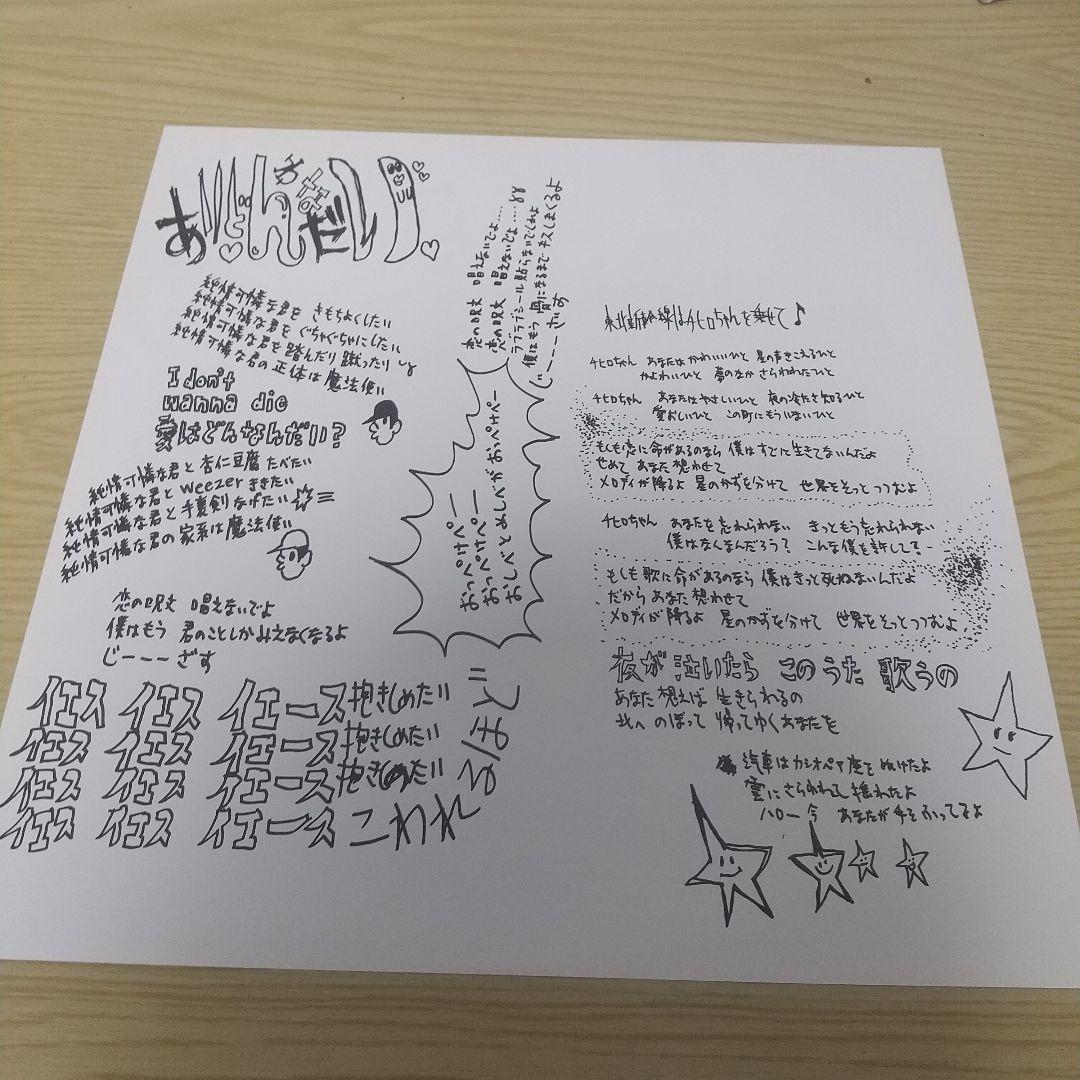 あいどんわなだい
純情可憐な君を きもちよくしたい
純情可憐な君を ぐちゃぐちゃにしたい
純情可憐な君を踏んだり蹴ったり
純情可憐な君の正体は魔法使い
I don't
wanna die
愛はどんなんだい?
純情可憐な君と 杏仁豆腐 たべたい
純情可憐な君と weezer ききたい
純情可憐な君と手裏剣なげたい
純情可憐な君の 家系は魔法使い
恋の呪文 唱えないでよ
僕はもう 君のことしかみえなくなるよ
じーーーざす
イエス イエス イエース 抱きしめたい
イエス イエス イエース 抱きしめたい
イエス イエス イエース 抱きしめたい
イエス イエス イエース こわれるほど
恋の呪文 唱えないでよ……
恋の呪文 唱えないでよ……
ラブラブシール貼らないでくれよ
僕はもう 骨になるまで キスしまくるよ
じーーーざす
おっぺけぺー
おっぺけぺー
おしべとめしべがおっぺけぺー
東北新幹線はチヒロちゃんを乗せて♪
チヒロちゃん あなたは かわいいひと 星の声きこえるひと
かよわいひと 夢のなか さらわれたひと
チヒロちゃん あなたは やさしいひと 夜の冷たさ知るひと
愛おしいひと この町にもういないひと
もしも恋に命があるのなら 僕はすでに生きてないんだよ
せめて あなた想わせて
メロディが降るよ 星のかずを分けて 世界をそっとつつむよ
チヒロちゃん あなたを忘れられない きっともう忘れられない
僕はなんなんだろう? こんな僕を許してー
もしも歌に命があるのなら 僕はきっと死ねないんだよ
だから あなた 想わせて
メロディが降るよ 星のかずを分けて 世界をそっとつつむよ
夜が泣いたら このうた 歌うの
あなた 想えば 生きられるの
北へのぼって 帰ってゆくあなたを
汽車はカシオペア座をぬけたよ
雲にさらわれて 揺れたよ
ハロー今 あなたが手をふってるよ